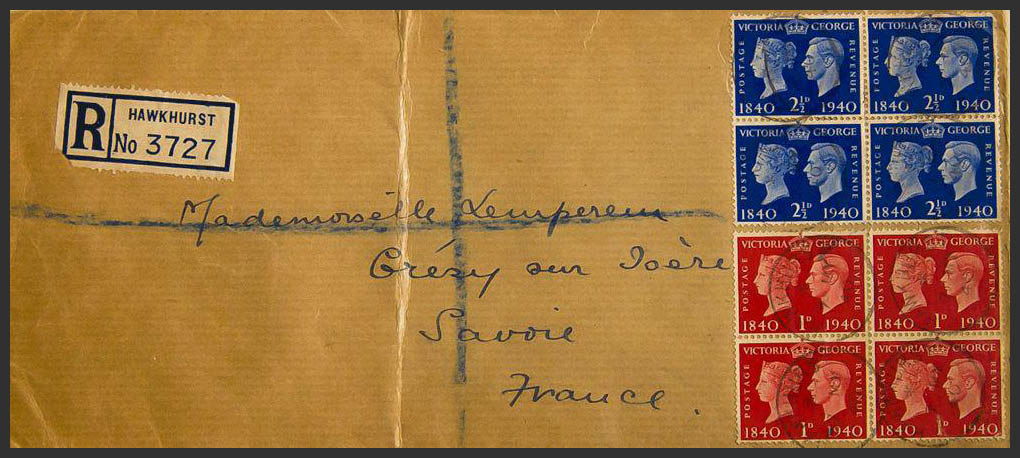 R HAWKHURST
No 3727
Mademoiselle
Grésy sur Isère
Savoie
France.
VICTORIA GEORGE
POSTAGE REVENUE
1840 2½D 1940
VICTORIA GEORGE
POSTAGE REVENUE
1840 2½D 1940
VICTORIA GEORGE
POSTAGE REVENUE
1840 2½D 1940
VICTORIA GEORGE
POSTAGE REVENUE
1840 2½D 1940
VICTORIA GEORGE
POSTAGE REVENUE
1840 1D 1940
VICTORIA GEORGE
POSTAGE REVENUE
1840 1D 1940
VICTORIA GEORGE
POSTAGE REVENUE
1840 1D 1940
VICTORIA GEORGE
POSTAGE REVENUE
1840 1D 1940